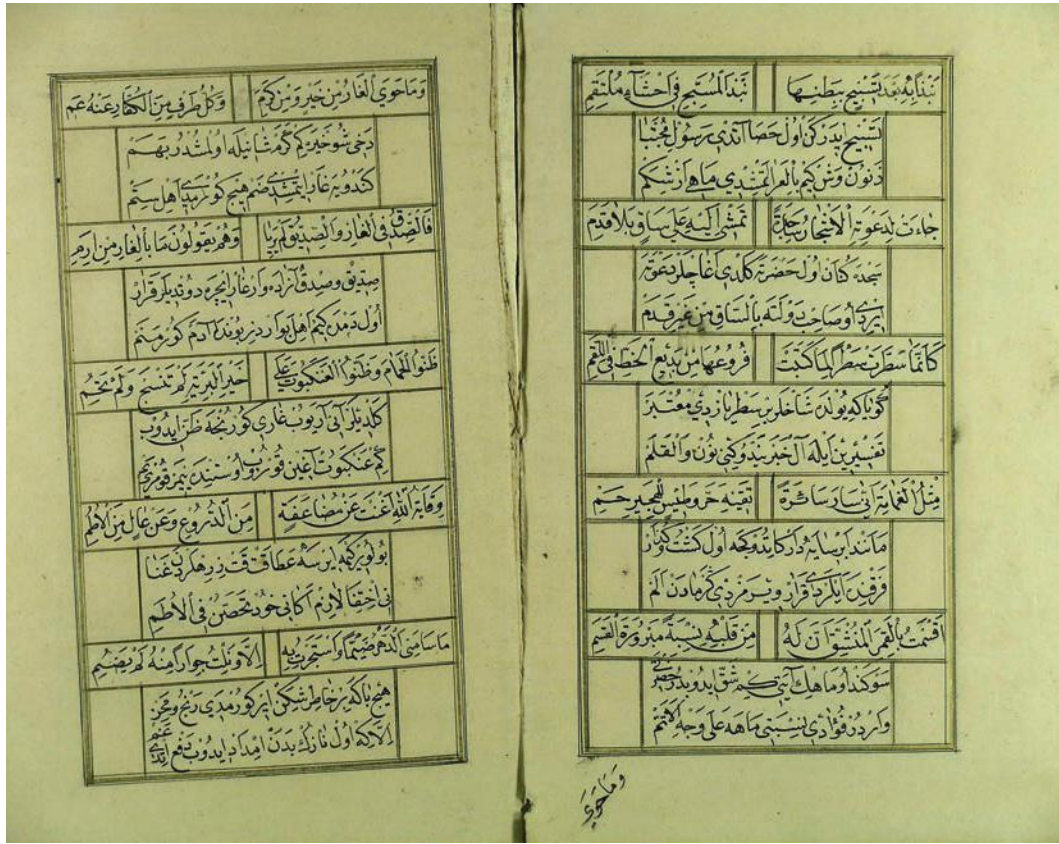 نَبْذًا بِهِ بَعْدَ تَسْبِيحٍ بِبَطْنِهِمَا نَبْذَ الْمُسَبِّحِ فِي اَحْشَآءِ مُلْتَقِمِ
تسبيح ايدركن اول حصا آتدى رسول مجتبا
ذنون وش كيم بالعرا آتمشدى ماهى از شكم
جَاءَتْ لِدَعْوَتِهِ الْاَشْجَارُ سَاجِدَةً تَمْشِي اِلَيْهِ عَلَى سَاقٍ بِلَا قَدَمِ
سجده كنان اول حضرته كلدى اغاجلر دعوته
ايردى او صاحب دولته بالساق من غير قدم
كَاَنَّمَا سَطَرَتْ سَطْرًا لِمَا كَتَبَتْ فُرُوعُهَا مِنْ بَدِيعِ الْخَطِّ فِي اللَّقَمِ
گويا كه يولده شاخلر بر سطر يازدى معتبر
تفسيرين ايله آل خبر نون والقلم
مِثْلُ الْغَمَامَةِ اَنَّى سَارَ سَائِرَةً تَقِيهِ حَرَّ وَطِيسٍ لِلْهَجِيرِ حَمِ
مانند ابر سايه دار كشت وگذار
فرقنده ايلردى قرار ويرمزدى گرمادن الم
اَقْسَمْتُ بِالْقَمَرِ الْمُنْشَقِّ اِنَّ لَهُ مِنْ قَلْبِهِ نِسْبَةً مَبْرُورَةَ الْقَسَمِ
سوكند او ماهك آيتى كيم شق ايدوبدر حضرتى
واردر فؤادى نسبتى ماهه على وجه الاتم
وما حوى
وَمَا حَوَى الْغَارُ مِنْ خَيْرٍ وَمِنْ كَرَمٍ وَكُلُّ طَرْفٍ مِنَ الْكُفَّارِ عَنْهُ عَمِ
دخى شو خيره كم كرم شانيله اولمشدر بهم
كندويه غار ايتمشدى ضم هيچ كورمدى اهل ستم
فَالصِّدْقُ فِي الْغَارِ وَالصِّدِّيقُ لَمْ يَرِمَا وَهُمْ يَقُولُونَ مَا بِالْغَارِ مِنْ اَرِمِ
صديق وصدق آزاده وار غار ايچره دوتديلر قرار
اول دمده كيم اهل بوار دير بونده آدم كورمنم
ظَنُّوا الْحَمَامَ وَظَنُّوا الْعَنْكَبُوتَ عَلَى خَيْرِ الْبَرِيَّةِ لَمْ تَنْسُجْ وَلَمْ تَحُمِ
كلديلر آنى آريوب غارى كورنجه ظن ايدوب
كم عنكبوت آغين قوروب اوستنده
وِقَايَةُ اللهِ اَغْنَتْ عَنْ مُضَاعَفَةٍ مِنَ الدُّرُوعِ وَعَنْ عَالٍ مِنَ الْاُطُمِ
بولور كمه ايرسه عطا قات قات زرهلردن غنا
نى اختفا لازم اكا نى خود تحصن فى الاطم
مَا سَامَنِي الدَّهْرُ ضَيْمًا وَاسْتَجَرْتُ بِهِ اِلَّا وَنِلْتُ جِوَارًا مِنْهُ لَمْ يُضَمِ
هيچ باكه بر خاطر شكن اير كورمدى رنج ومحن
الا كه اول نازك بدن امداد ايدوب دفع ايتدى غم